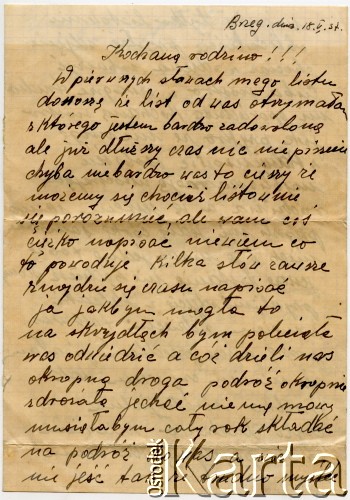 Brzeg. dnia. 18.V.57.
Kochana rodzino!!!
W pierwszych słowach mego listu
donoszę że list od was otrzymałam
z którego jestem bardzo zadowoloną
ale już dłuższy czas nic nie piszecie
chyba niebardzo was to cieszy że
możemy się chociaż listownie
się porozumieć, ale wam coś
ciężko napisać niewiem co
to powoduje kilka słów zawsze
znajdzie się czasu napisać
ja jakbym mogła to
na skrzydłach bym poleciała
was odwiedzić a cóż dzieli nas
okropna droga podróż okropnie
zdrożała jechać niema mowy
musiałabym cały rok składać
na podróż do was a
nie jest tak
ośrodek
Karta